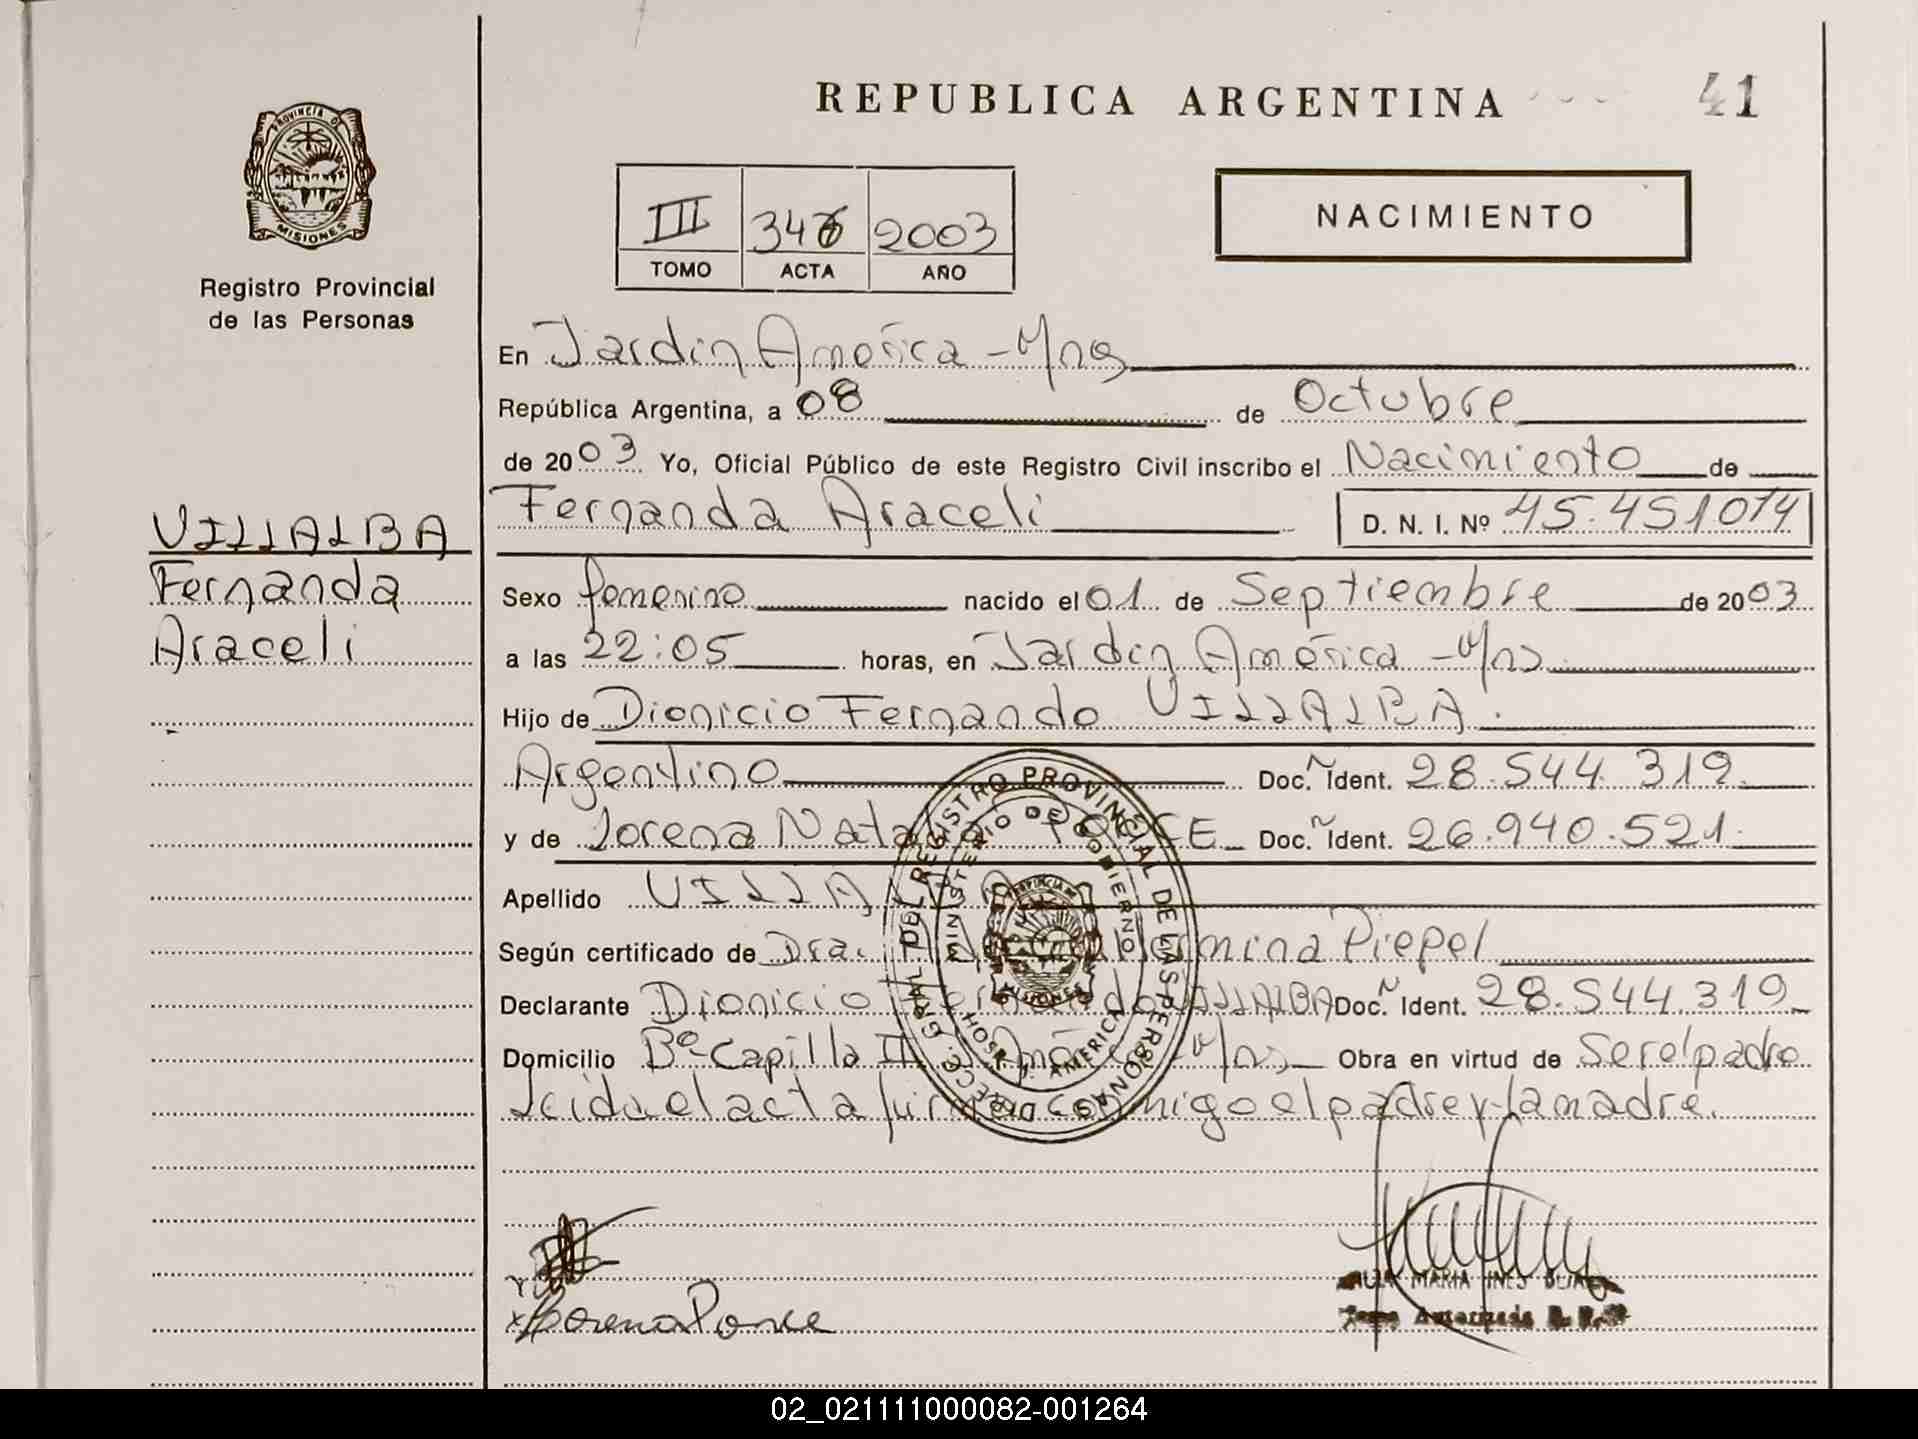 REPUBLICA ARGENTINA
41
PROVINCIA DE
MISIONES
Registro Provincial
de las Personas
III 346 2003
TOMO ACTA AÑO
NACIMIENTO
En Jardín América - Mnes
República Argentina, a 08 de Octubre
de 2003 Yo, Oficial Público de este Registro Civil inscribo el Nacimiento de
Fernanda Araceli D. N. I. Nº 45.451014
VILLALBA
Fernanda
Araceli
Sexo femenino nacido el 01 de Septiembre de 2003
a las 22:05 horas, en Jardín América - Mns
Hijo de Dionicio Fernando VILLALBA.
Argentino Doc. Ident. 28.544.319.
y de Lorena Natalia PONCE Doc. Ident. 26.940.521.
Apellido VILLALBA
Según certificado de Dra. Hermina Piepel
Declarante Dionicio Fernando VILLALBA Doc. Ident. 28.544.319
Domicilio Bº Capilla II J. América - Mns Obra en virtud de Ser el padre
Leida el acta firman conmigo el padre y la madre.
DIRECC. GRAL. DEL REGISTRO PROVINCIAL DE LAS PERSONAS
MINISTERIO DE GOBIERNO
PROVINCIA DE
MISIONES
HOSP. J. AMERICA
x Lorena Ponce
MARIA INES
Autorizada
02_021111000082-001264